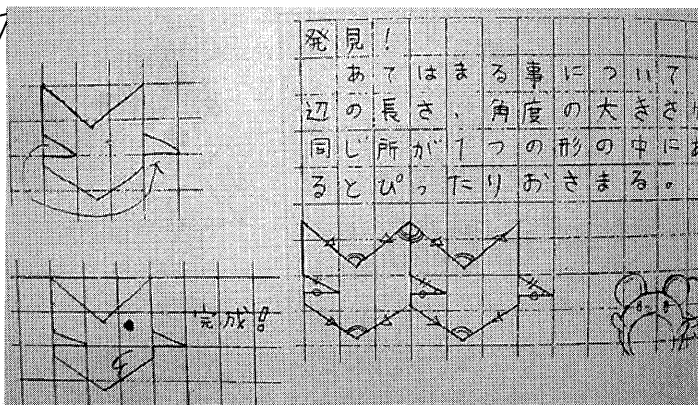 発見！
あてはまる事について
辺の長さ、角度の大きさ
同じ所が1つの形の中に
るとぴったりおさまる。
完成!!